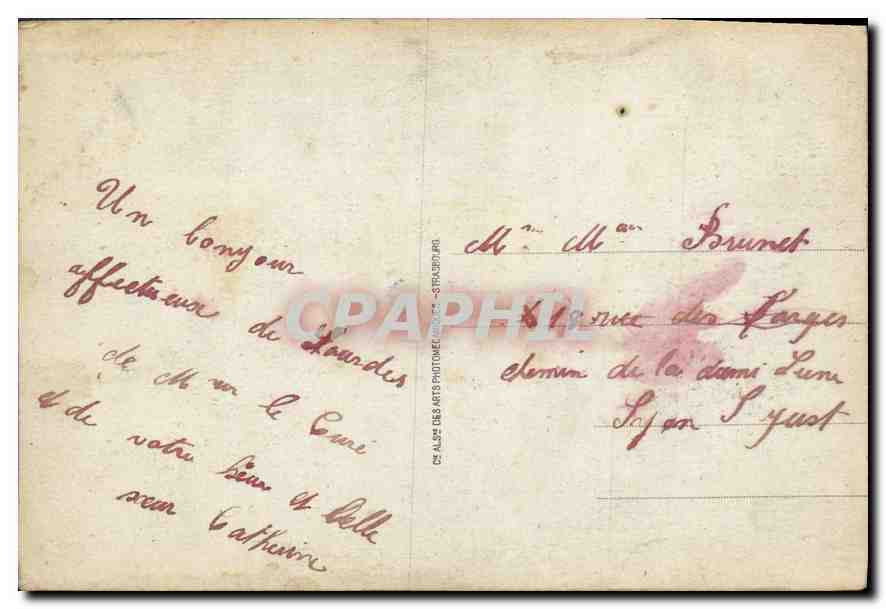 Un bonjour
affectueux de Lourdes
de Mr le Curé
et de votre sœur et belle
sœur Catherine
Cie ALSne DES ARTS PHOTOMECANIQUES - STRASBOURG.
Mme Brunet
rue des
chemin de la demi Lune
Lyon St Just
CPAPHIL